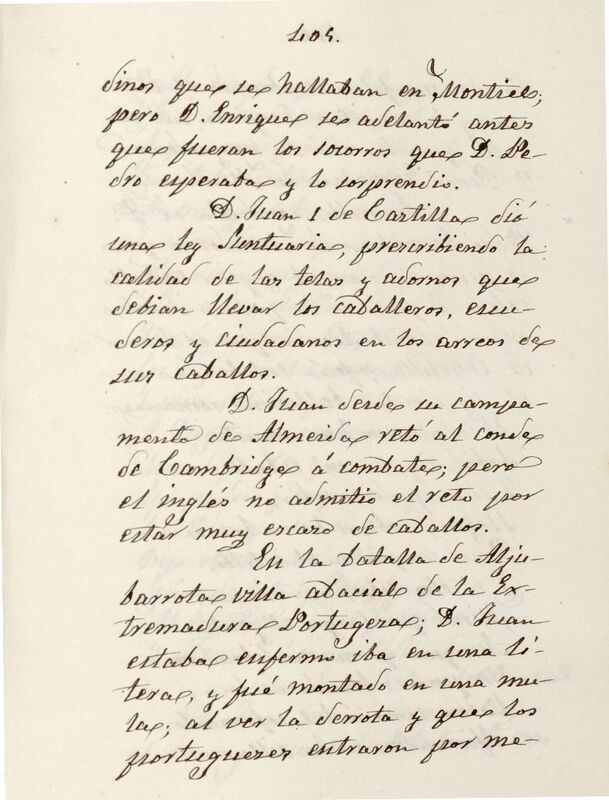 405.
dinos que se hallaban en Montiel;
pero D. Enrique se adelantó antes
que fueran los socorros que D. Pe-
dro esperaba y lo sorprendio.
D. Juan 1 de Castilla dió
una ley Suntuaria, prescribiendo la
calidad de las telas y adornos que
debian llevar los caballeros, escu-
deros y ciudadanos en los arreos de
sus caballos.
D. Juan desde su campa-
mento de Almeida retó al conde
de Cambridge á combate; pero
el inglés no admitio el reto por
estar muy escazo de caballos.
En la batalla de Alju-
barrota villa abacial de la Ex-
tremadura Portugeza; D. Juan
estaba enfermo iba en una li-
tera, y fué montado en una mu-
la; al ver la derrota y que los
portuguezes entraron por me-